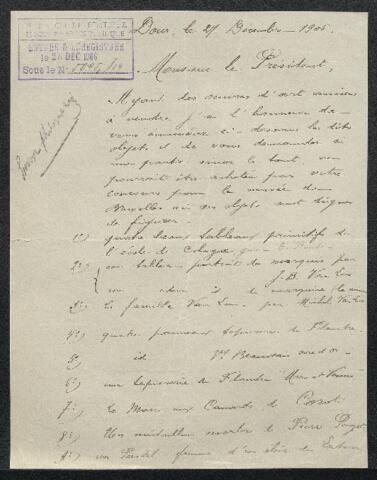 ENTRÉE & ENREGISTRÉE
le 28 DEC 1906
Sous le N°
Dour, le 27 Décembre 1906.
Monsieur le Président,
Ayant des œuvres d'art anciens
à vendre j'ai l'honneur de
vous énumérer ci-dessous les dits
objets et de vous demander si
une partie sinon le tout, ne
pourrait être achetée par votre
concours pour le musée de
Bruxelles où ces objets sont dignes
de figurer.
1°) quatre beaux tableaux primitifs de
l'école de Cologne
2°) un tableau portrait de marquis par
J. B. Van Loo
un idem id de marquise
3°) la famille Van Loo. par Michel Van Loo
4°) quatre panneaux tapisserie de Flandre
5°) id Beauvais
6°) une tapisserie de Flandre Mars et Vénus
7°) La Mare aux Canards de Corot
8°) Un médaillon marbre de Pierre Puget
9°) un Pastel femme d'un élève de Latour